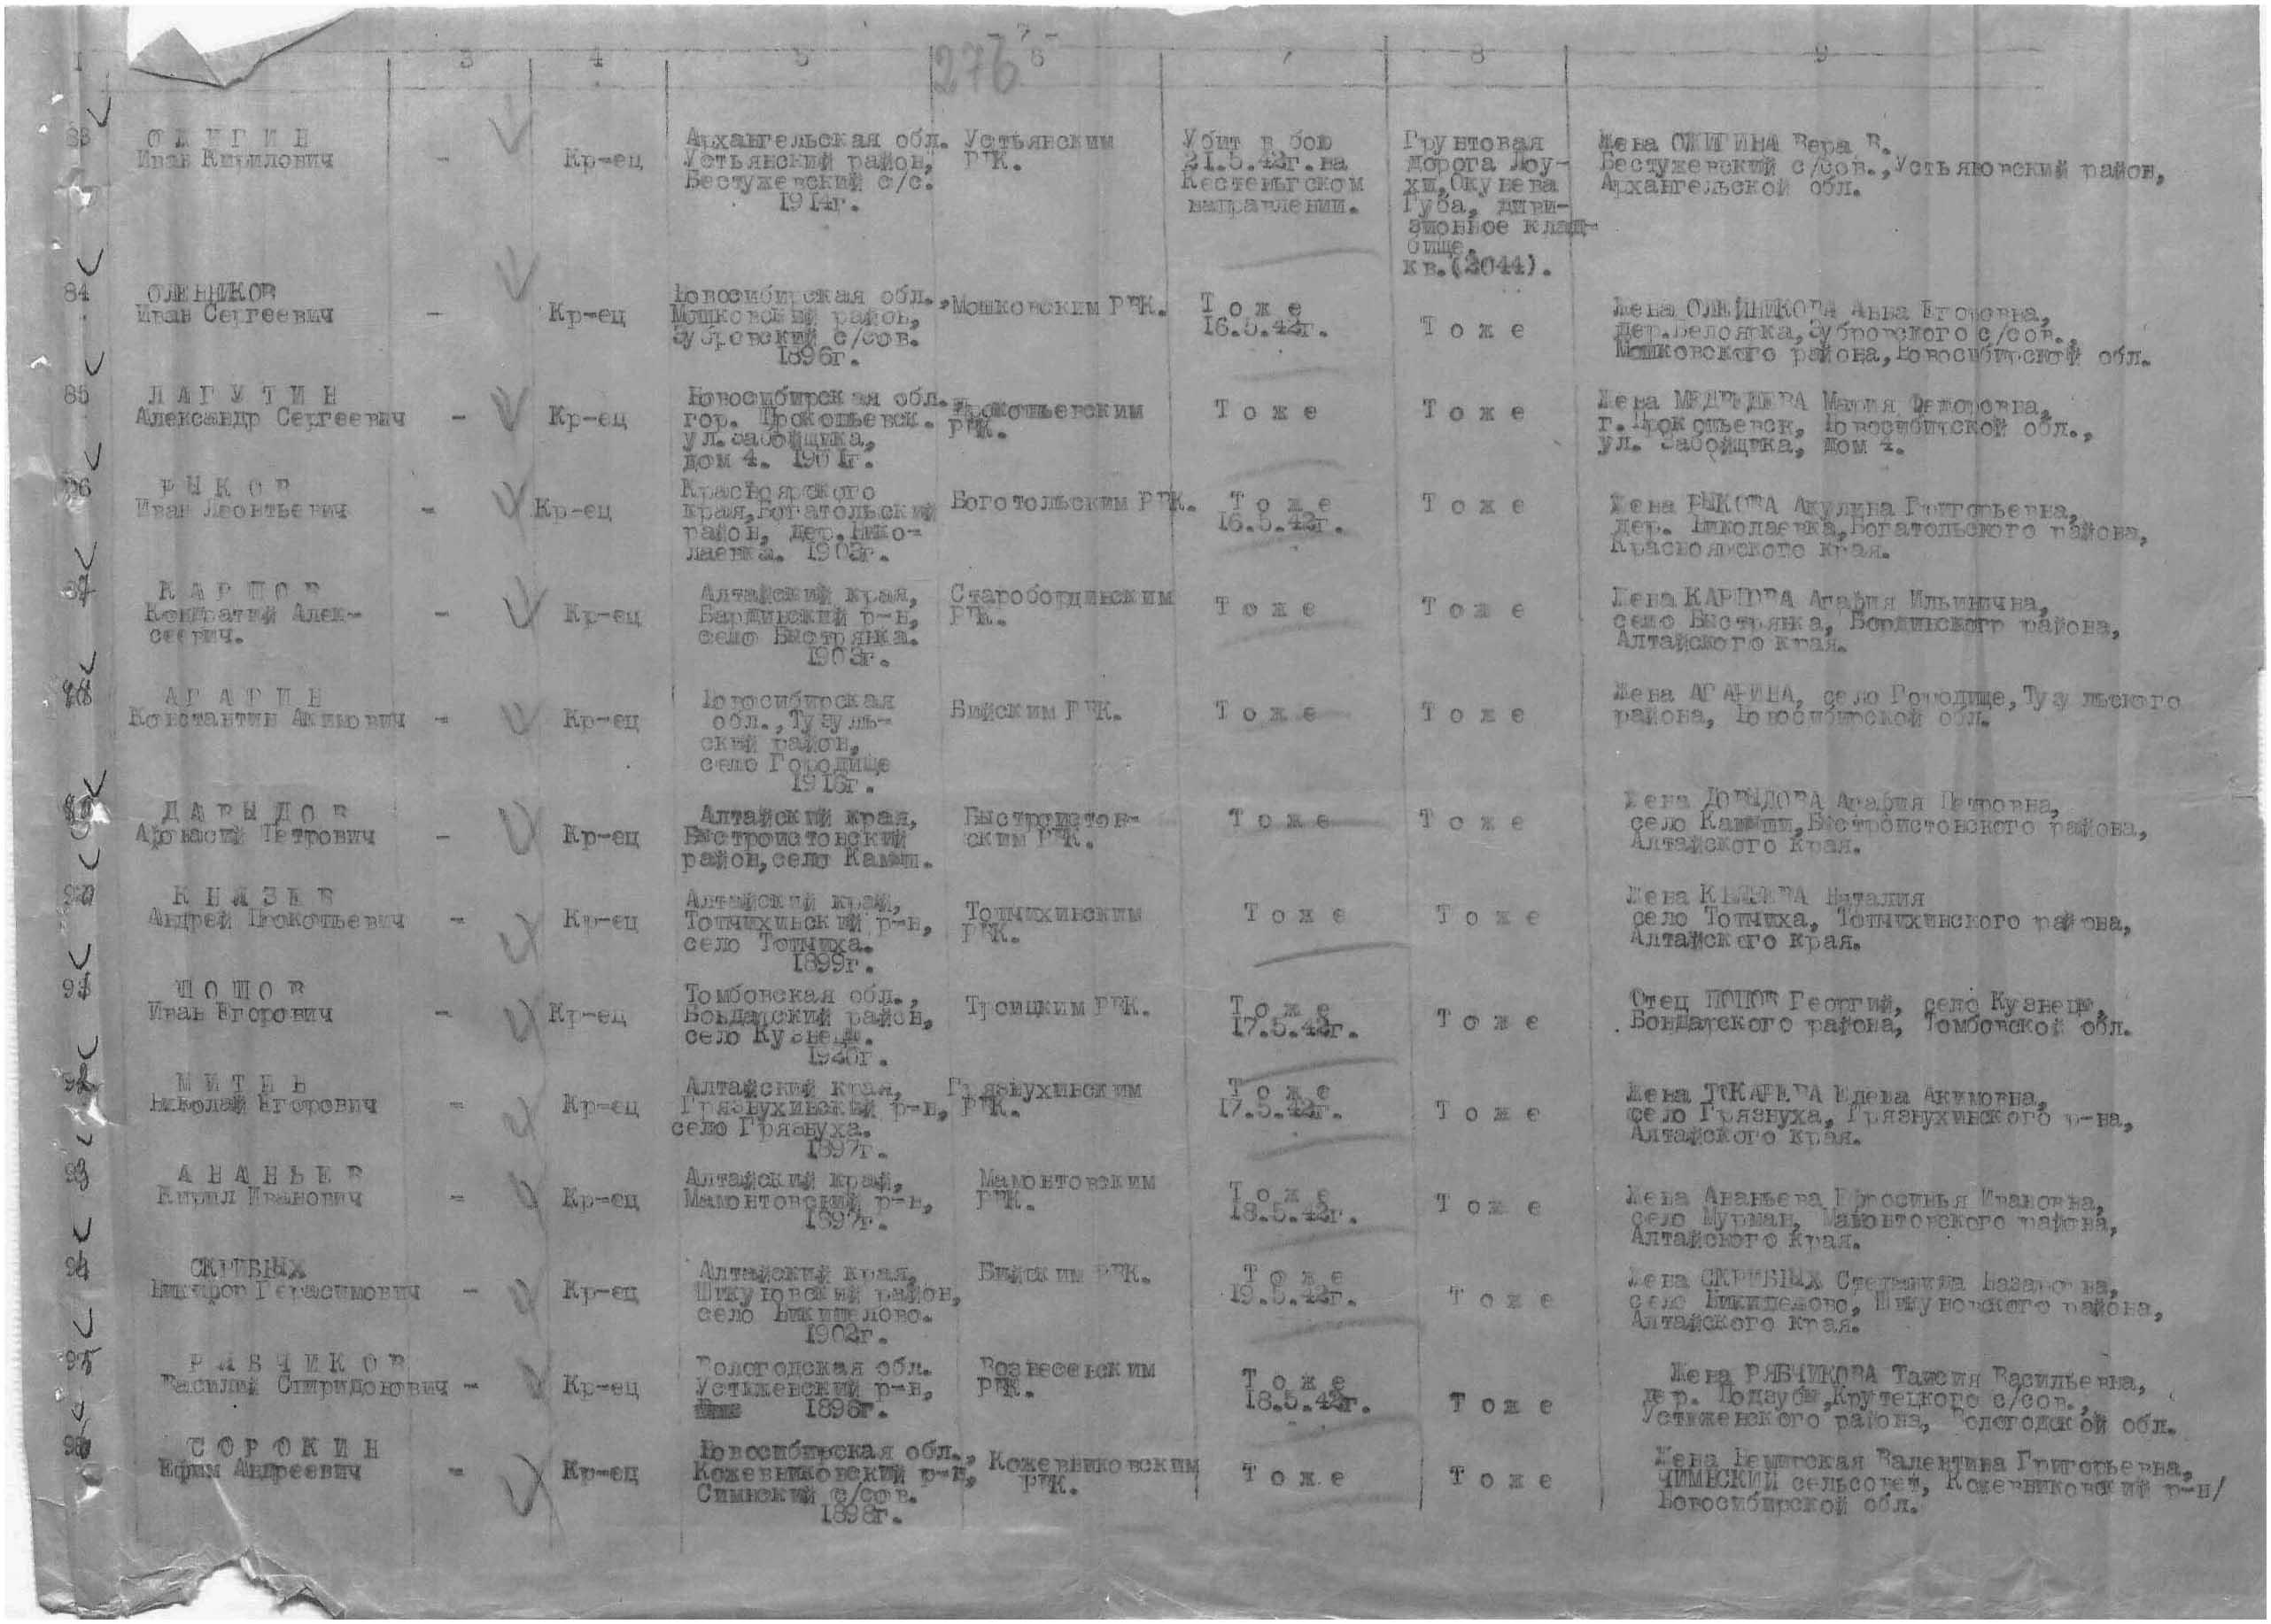 - 7 -
276
1 3 4 5 6 7 8 9
83 О Ж И Г И Н
Иван Кирилович - Кр-ец
Архангельская обл.
Устьянский район,
Бестужевский с/с.
1914г.
Устьянским
РВК.
Убит в бою
21.5.42г. на
Кестеньгском
направлении.
Грунтовая
дорога Лоу-
хи, Окунева
Губа, диви-
зионное клад-
бище.
кв.(2044).
Жена ОЖИГИНА Вера В.
Бестужевский с/сов., Устьяновский район,
Архангельской обл.
84 ОЛЕННИКОВ
Иван Сергеевич - Кр-ец
Новосибирская обл.,
Мошковский район,
Зубровский с/сов.
1896г.
Мошковским РВК.
Т о ж е
16.5.42г.
Т о ж е
Жена ОЛЕЙНИКОВА Анна Егоровна,
дер.Белоярка, Зубровского с/сов.,
Мошковского района, Новосибирской обл.
85 Л А Г У Т И Н
Александр Сергеевич - Кр-ец
Новосибирская обл.
гор. Прокопьевск.
ул.Забойщика,
дом 4. 1901г.
Прокопьевским
РВК.
Т о ж е
Т о ж е
Жена МЕДВЕДЕВА Мария Федоровна,
г. Прокопьевск, Новосибитской обл.,
ул. Забойщика, дом 4.
86 Р Ы К О В
Иван Леонтьевич - Кр-ец
Красноярского
края, Богатольский
район, дер. Нико-
лаевка. 1903г.
Боготольским РВК.
Т о ж е
16.5.42г.
Т о ж е
Жена РЫКОВА Акулина Григорьевна,
дер. Николаевка, Богатольского района,
Красноярского края.
87 К А Р П О В
Кондратий Алек-
сеевич. - Кр-ец
Алтайский края,
Бардинский р-н,
село Быстрянка.
1903г.
Старобординским
РВК.
Т о ж е
Т о ж е
Жена КАРПОВА Агафия Ильинична,
село Быстрянка, Бординского района,
Алтайского края.
88 А Г А Р И Н
Константин Акимович - Кр-ец
Новосибирская
обл., Тузуль-
ский район,
село Городище
1916г.
Бийским РВК.
Т о ж е
Т о ж е
Жена АГАРИНА, село Городище, Тузульского
района, Новосибирской обл.
89 Д А В Ы Д О В
Афонасий Петрович - Кр-ец
Алтайский края,
Быстроистовский
район, село Камыш.
Быстроистов-
ским РВК.
Т о ж е
Т о ж е
Жена ДОВЫДОВА Агафия Петровна,
село Камыши, Быстроистовского района,
Алтайского края.
90 К Н Я З Е В
Андрей Прокопьевич - Кр-ец
Алтайский край,
Топчихинский р-н,
село Топчиха.
1899г.
Топчихинским
РВК.
Т о ж е
Т о ж е
Жена КНЯЗЕВА Наталия
село Топчиха, Топчихинского района,
Алтайского края.
91 П О П О В
Иван Егорович - Кр-ец
Томбовская обл.,
Бондарский район,
село Кузнецы.
1920г.
Троицким РВК.
Т о ж е
17.5.42г.
Т о ж е
Отец ПОПОВ Георгий, село Кузнецы,
Бондарского района, Томбовской обл.
92 М И Т Е Н Ь
Николай Егорович - Кр-ец
Алтайский края,
Грязнухинский р-н,
село Грязнуха.
1897г.
Грязнухинским
РВК.
Т о ж е
17.5.42г.
Т о ж е
Жена ТОКАРЕВА Елена Акимовна,
село Грязнуха, Грязнухинского р-на,
Алтайского края.
93 А Н А Н Ь Е В
Кирил Иванович - Кр-ец
Алтайский край,
Мамонтовский р-н,
1897г.
Мамонтовским
РВК.
Т о ж е
18.5.42г.
Т о ж е
Жена Ананьева Ефросинья Ивановна,
село Мурман, Мамонтовского района,
Алтайского края.
94 СКРИБНЫХ
Никифор Герасимович - Кр-ец
Алтайский края,
Шикуновский район,
село Никипелово.
1902г.
Бийским РВК.
Т о ж е
19.5.42г.
Т о ж е
Жена СКРИБНЫХ Степанида Назаровна,
село Никипелово, Шикуновского района,
Алтайского края.
95 Р Я Б Ч И К О В
Василий Спиридонович - Кр-ец
Вологодская обл.
Устюжевский р-н,
1896г.
Вознесенским
РВК.
Т о ж е
18.5.42г.
Т о ж е
Жена РЯБЧИКОВА Таисия Васильевна,
дер. Подзубы, Крутецкого с/сов.,
Устюженского района, Вологодской обл.
96 С О Р О К И Н
Ефим Андреевич - Кр-ец
Новосибирская обл.,
Кожевниковский р-н,
Симнский с/сов.
1898г.
Кожевниковским
РВК.
Т о ж е
Т о ж е
Жена Немитская Валентина Григорьевна,
ЧИМНСКИЙ сельсовет, Кожевниковский р-н/
Новосибирской обл.